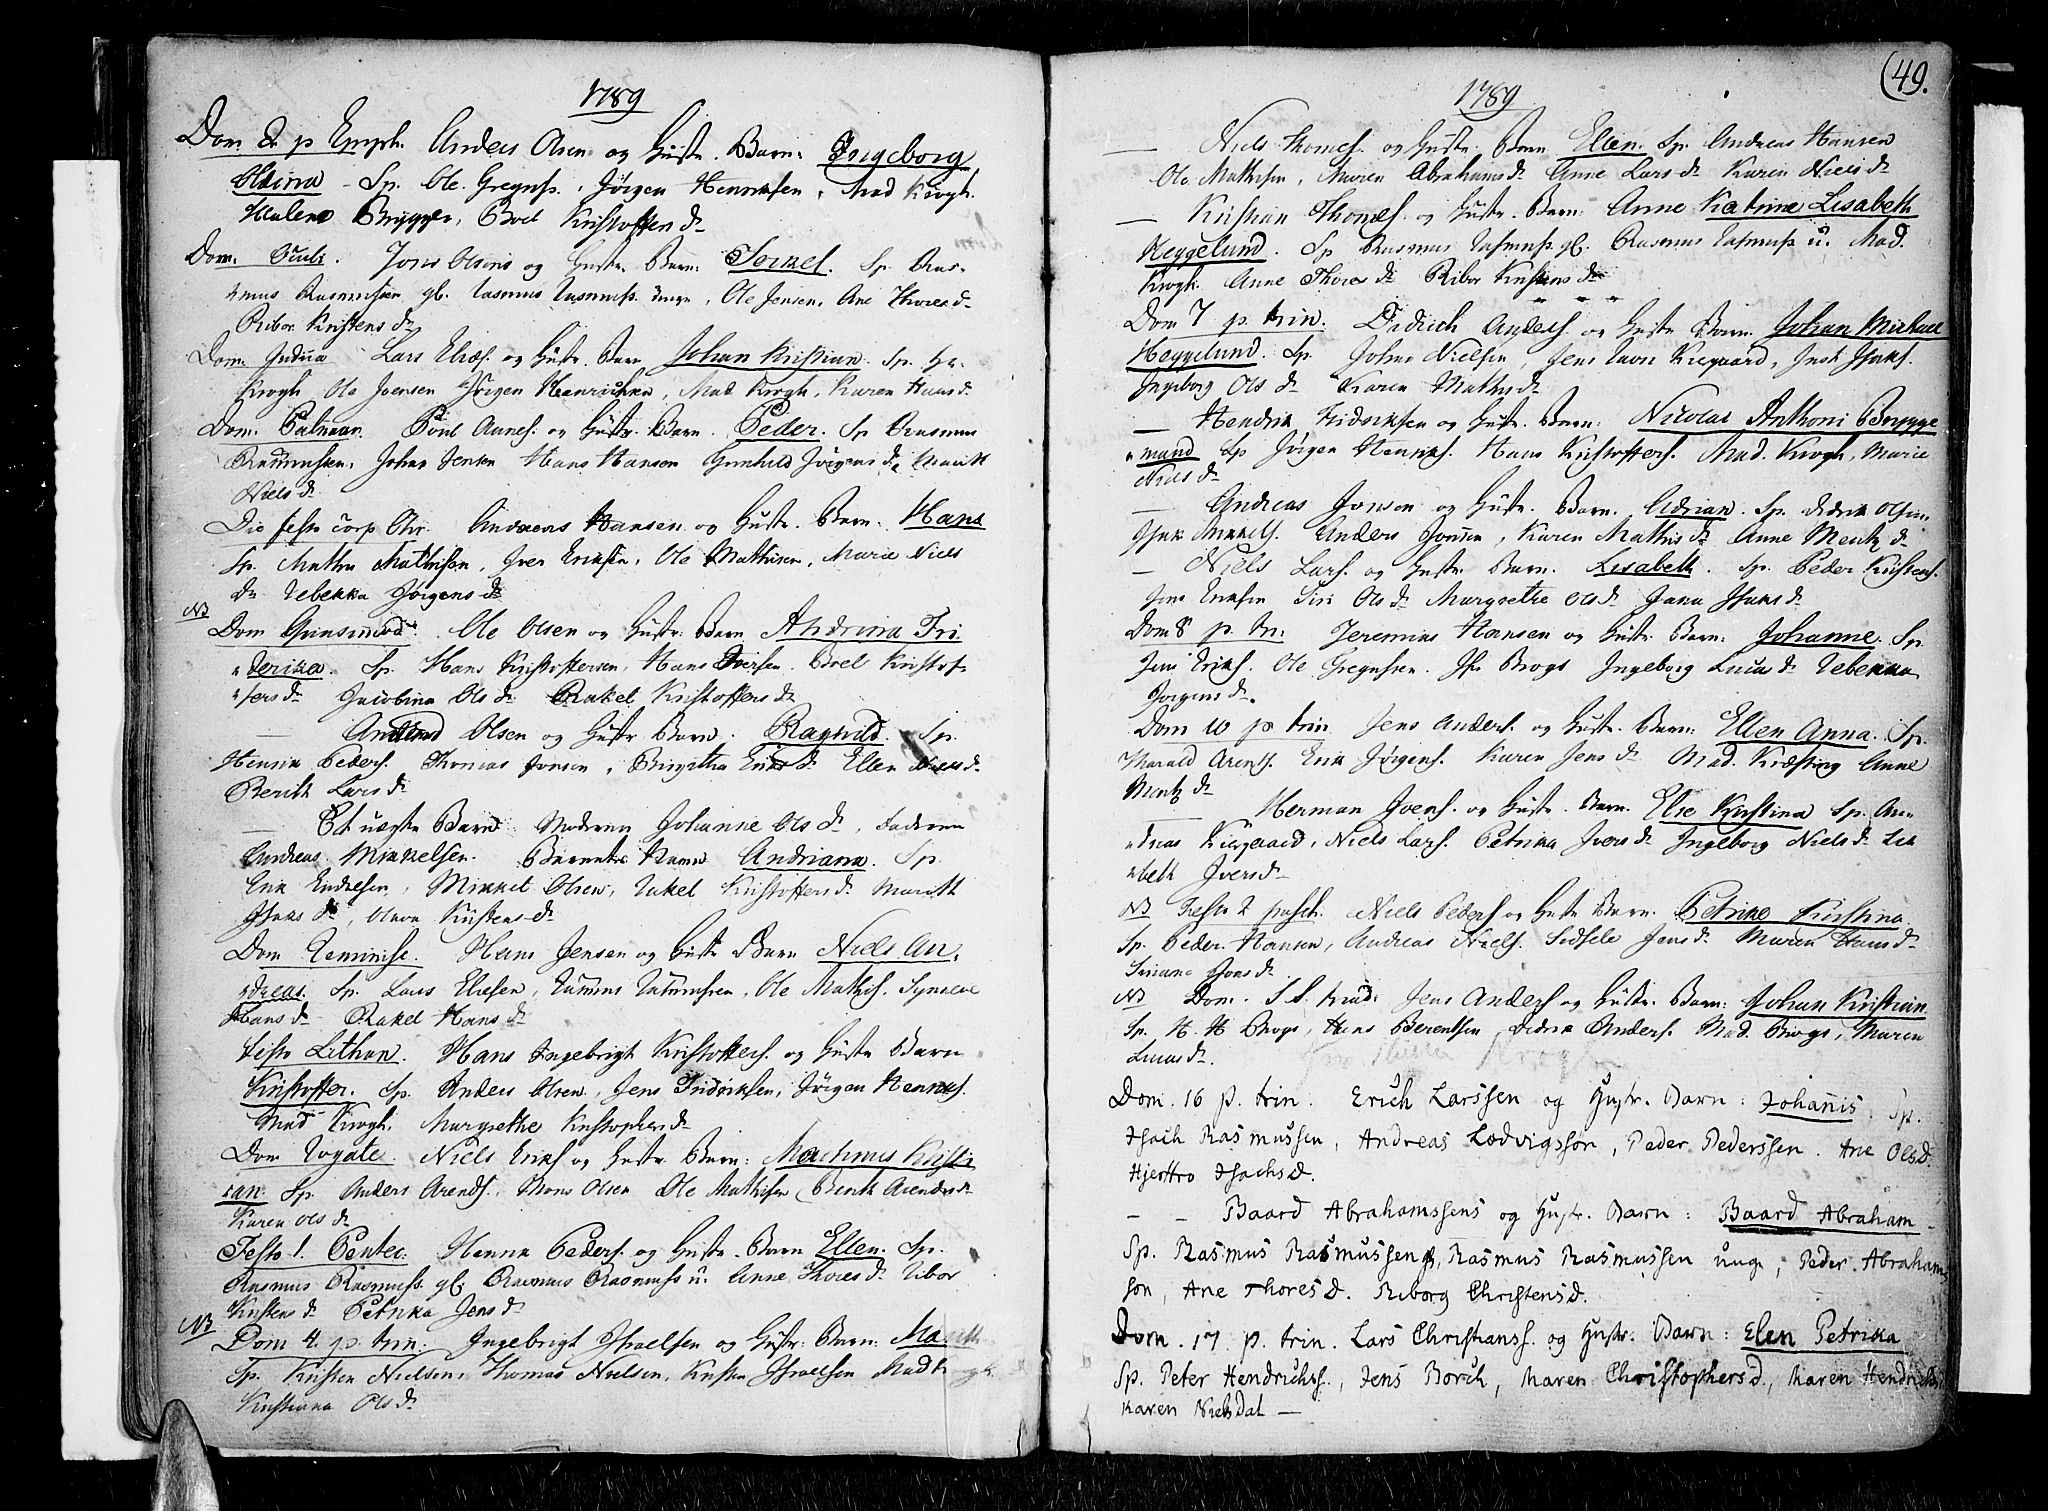 1789
Dom 2 p Epiph. Anders Olsen og Hustr. Barn: Ingeborg
Sp. Ole Gregriss. Jørgen Henriksen, Mad Krogh
Brygger, Boel Kristoffers dr
Dom. Jons Olsens og Hustr. Barn: Torkel. Sp. Ras-
mus Rasmussen gl. Rasmus Rasmuss. unge, Ole Jensen, Ane Thores dr
Ribor Kristens dr
Dom. Judica Lars Elias. og Hustr. Barn Johan Kristian. Sp. Hr.
Krogh Ole Joensen Jørgen Henrichsen, Mad Krogh, Karen Hans dr
Dom. Palmar. Poul Annes. og Hustr. Barn. Peder. Sp Rasmus
Rasmussen, Johan Jensen Hans Hansen Gunhild Jørgens dr, Marith
Niels dr
Die festo Chr. Andreas Hansen og Hustr. Barn: Hans
Sp. Mathis Mathisen, Iver Eriksen, Ole Mathisen, Marie Niels
Dr Rebekka Jørgens dr
NB
Dom Quinsimod. Ole Olsen og Hustr. Barn Andrina Fri
derika. Sp. Hans Kristoffersen, Hans Iversen. Boel Kristof-
fers dr Jacobina Ols dr Rakel Kristoffers dr
— Olsen og Hustr Barn. Ragnild. Sp.
Henrik Peders. Thomas Jonsen, Birgitha Eriks dr Ellen Niels dr
Berith Lars dr
— Et uægte Barn. Moderen Johanne Ols dr, Faderen
Andreas Mikkelsen. Barnets Navn Andriana. Sp.
Erik Endresen, Mikkel Olsen, Rakel Kristoffers dr Marith
Isaks dr, Olava Kristens dr
Dom Reminisc. Hans Jensen og Hustr Barn Niels An-
dreas. Sp. Lars Eliesen, Rasmus Rasmussen, Ole Mathis.
Hans dr Rakel Hans dr
festo Lithan. Hans Ingebrigt Kristoffers. og Hustr Barn
Kristoffer. Sp. Anders Olsen, Jens Fridriksen, Jørgen Henriks.
Mad Krogh, Margrethe Kristophers dr
Dom Rogate. Niels Eriks og Hustr. Barn: Mathius Kristi
an Sp. Anders Arends. Mons Olsen Ole Mathisen Berith Arends dr
Karen Ols dr
Festo 1. Pentec. Henrik Peders. og Hustr. Barn Ellen. Sp.
Rasmus Rasmuss. gl. Rasmus Rasmuss u. Anne Thores dr Ribor
Kristens dr Petrika Jens dr
NB
Dom 4. p. trin. Ingebrigt Israelsen og Hustr. Barn: Marith
Sp. Kristen Nielsen, Thomas Nielsen, Kristen Israelsen Mad Krogh
Kristiana Ols dr
1789
(49.
— Niels Thomes. og Hustr. Barn Ellen. Sp. Andreas Hansen
Ole Mathisen, Maren Abrahams dr Anne Lars dr Karen Niels dr
— Kristian Thomes. og Hustr. Barn: Anne Katrine Lisabeth
Heggelund. Sp Rasmus Rasmuss. gl. Rasmus Rasmuss u. Mad.
Krogh. Anne Thores dr Ribor Kristens dr
Dom 7 p. trin. Didrich Anders. og Hustr Barn: Johan Michael
Heggelund. Sp. Johan Nielsen, Jens Kiergaard, Isaks.
Ingeborg Ols dr Karen Mathis dr
— Hendrik Fridriksen og Hustr. Barn: Nicolai Anthoni Børgge
mand Sp Jørgen Henriks. Hans Kristoffers. Mad. Krogh, Marie
Niels dr
— Andreas Jonsen og Hustr. Barn. Adrian. Sp. Didrik Olsen
Isak Mikkels. Anders Jonsen, Karen Mathis dr Anne Mentz dr
— Niels Lars. og Hustr. Barn. Lisabeth. Sp. Peder Kristens.
Jens Eriksen Siri Ols dr Margrethe Ols dr Jana Isaks dr
Dom 8 p. tri. Jeremias Hansen og Hustr. Barn: Johanne. Sp
Jens Eriks. Ole Gregrisen. Hr Brogs Ingeborg Lucas dr Rebekka
Jørgens dr.
Dom 10 p trin Jens Anders. og Hustr. Barn: Ellen Anna. Sp.
Harald Arens. Erik Jørgens. Karen Jens dr Mad. Kræfting Anne
Mentz dr
— Herman Ivers. og Hustr. Barn. Else Kristina Sp. An-
dreas Kiergaard, Niels Lars. Petrika Ivers dr Ingeborg Niels dr Lisa
beth Ivers dr
NB Festo 2 pasch. Niels Peders og Hustr Barn: Petrike Kristina.
Sp. Peder Hansen, Andreas Niels. Sidsele Jens dr Maren Hans dr
Siriana Jons dr
NB Dom. S. S. trinit: Jens Anders og Hustr. Barn: Johan Kristian
Sp. H. H Brogs, Hans Berentsen, Didrik Anders. Mad. Brogs, Maren
Lucas dr
Dom. 16 p. trin. Erich Larssen og Hustr. Barn: Johañis. Sp.
Isach Rasmussen, Andreas Lodvigssøn, Peder Pederssen. Ane Olsd.
Hjertro Isachsd.
— — Baard Abrahamssens og Hustr. Barn: Baard Abraham—
Sp. Rasmus Rasmussen g., Rasmus Rasmussen unge, Peder Abrahams
son, Ane Thoresd. Riborg Christensd.
Dom. 17. p. trin. Lars Christianss. og Hustr. Barn: Elen Petrika
Sp. Peter Hendrichss., Jens Borch, Maren Christophersd., Maren Hendrichs
Karen Nielsdat —